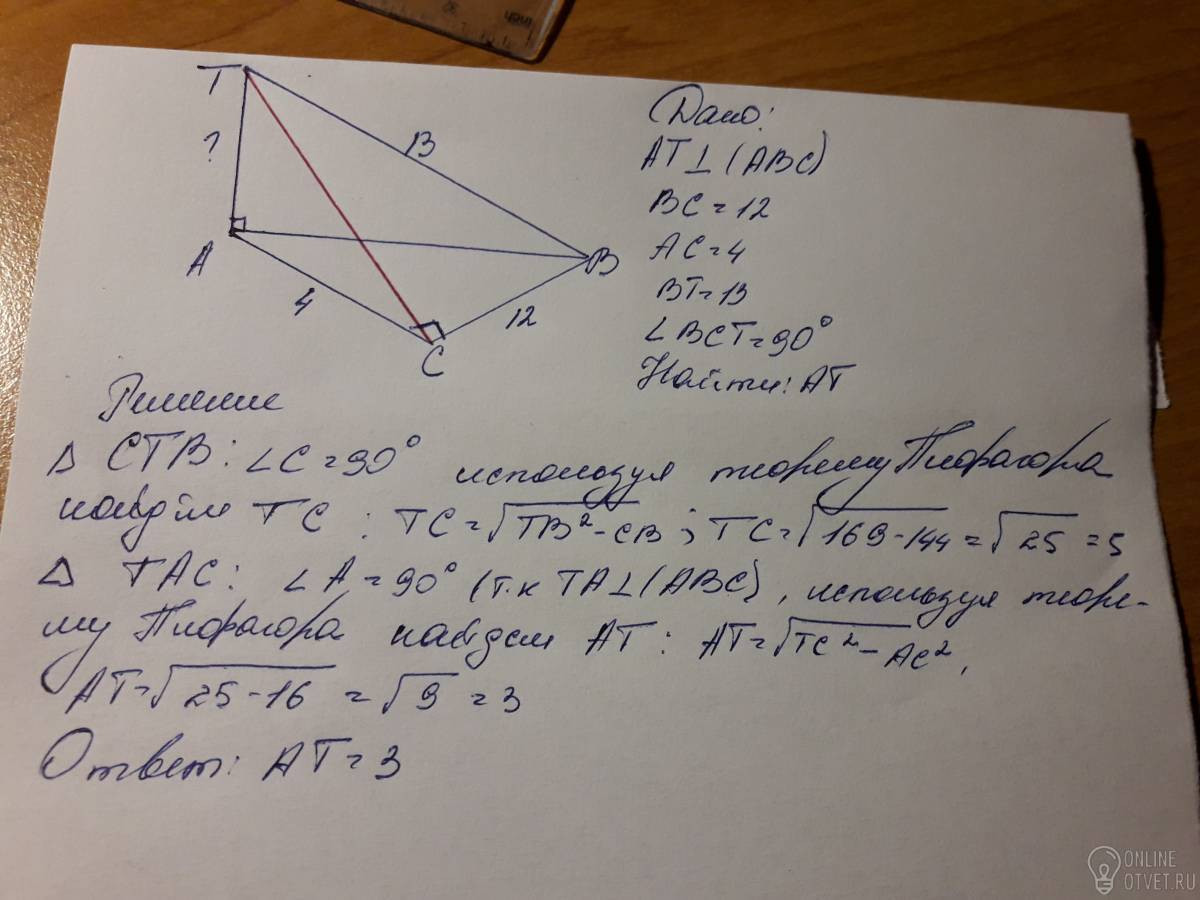 T
?
13
Дано:
AT⊥(ABC)
BC=12
A
B
AC=4
BT=13
4
12
∠BCT=90°
C
Найти: AT
Решение
△ CTB: ∠C=90° используя теорему Пифагора
найдём TC: TC=√TB²-CB; TC=√169-144=√25=5
△ TAC: ∠A=90° (т.к TA⊥(ABC), используя теоре-
му Пифагора найдем AT: AT=√TC²-AC²,
AT=√25-16=√9=3
Ответ: AT=3
ONLINE
OTVET.RU